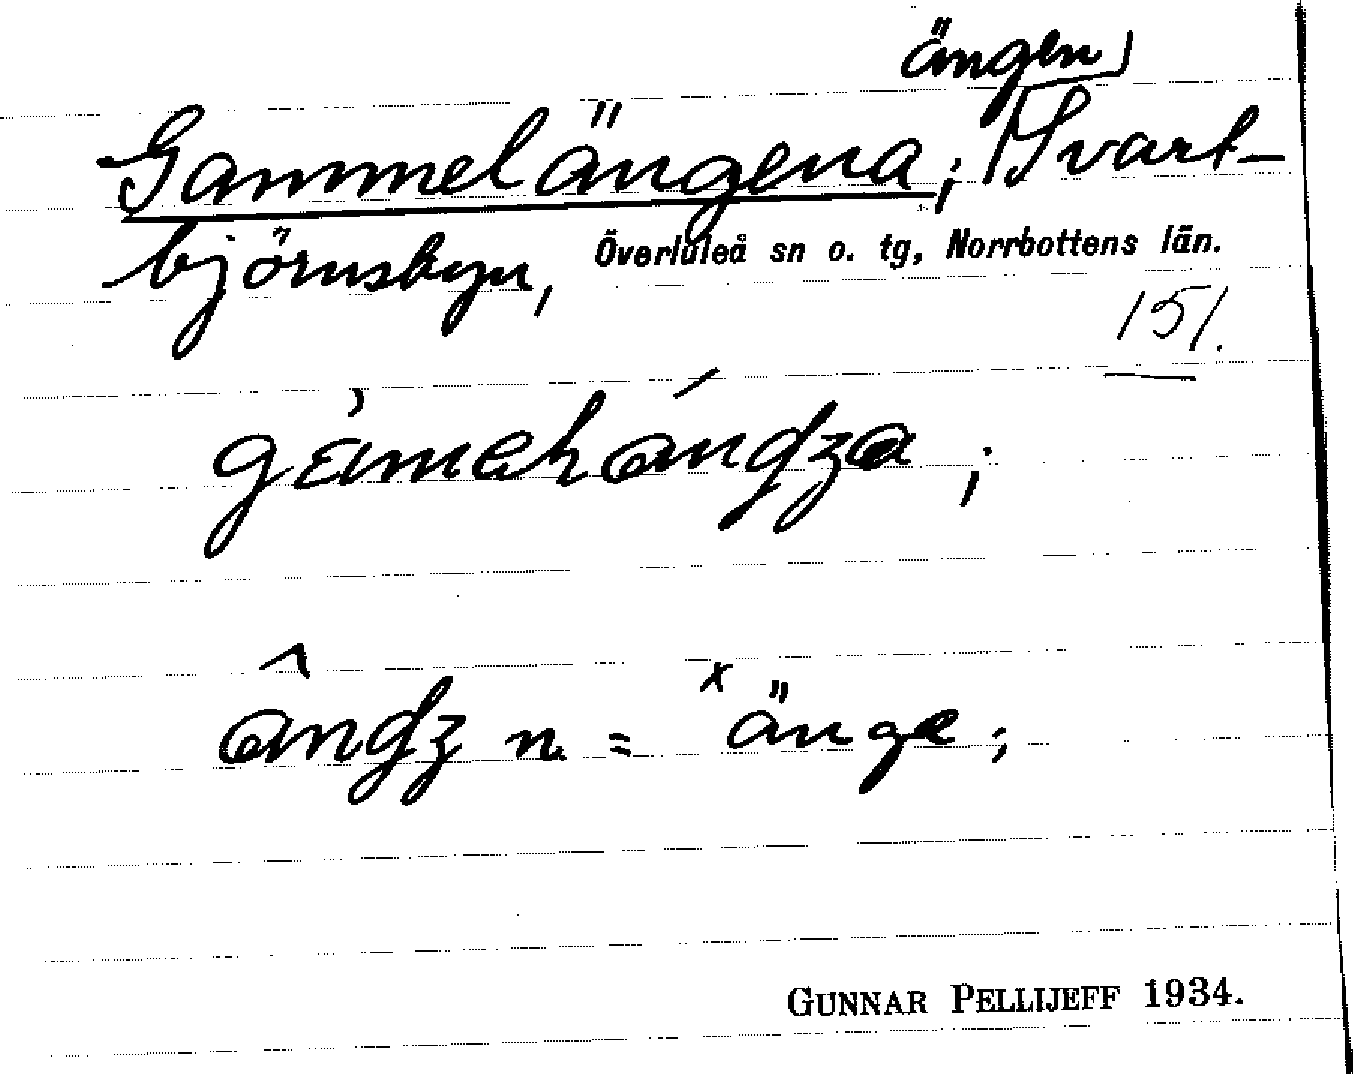 ängen
Gammelängena; Svart-
björnsbyn, Överluleå sn o. tg, Norrbottens län.
151.
ândʒ n. = ˣänge;
GUNNAR PELLIJEFF 1934.